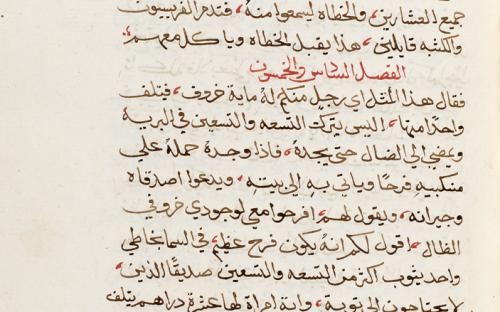 جميع العشارين، والخطاه ليسمعوا منهُ، فتذمر الفريسيون
والكتبه قايلين، هذا يقبل الخطاه وياكل معهم،
الفصل السادس والخمسون
فقال هذا المثل اي رجلٍ منكم لهُ ماية خروف، فيتلف
واحدًا منها، اليس يترك التسعه والتسعين في البرية
ويمضي الي الضال حتي يجدهُ، فاذا وجدهُ حملهُ علي
منكبيهِ فرحًا وياتي بهِ الي بيته، ويدعوا اصدقاه
وجيرانه، ويقول لهم افرحوا معي لوجودي خروفي
الضال، اقول لكم انهُ يكون فرح عظيم في السما بخاطي
واحد يتوب اكثر من التسعه والتسعين صديقًا الذين،
لا يحتاجون الي توبة، واية امراة لها عشرة دراهم يتلف